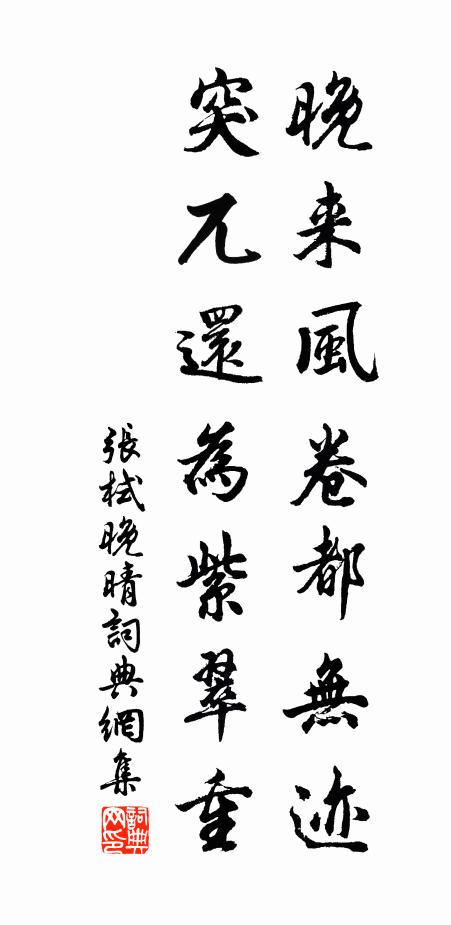 晚来風卷都無迹
突兀還為紫翠重
張栻晚晴詞典網集
詞典网印